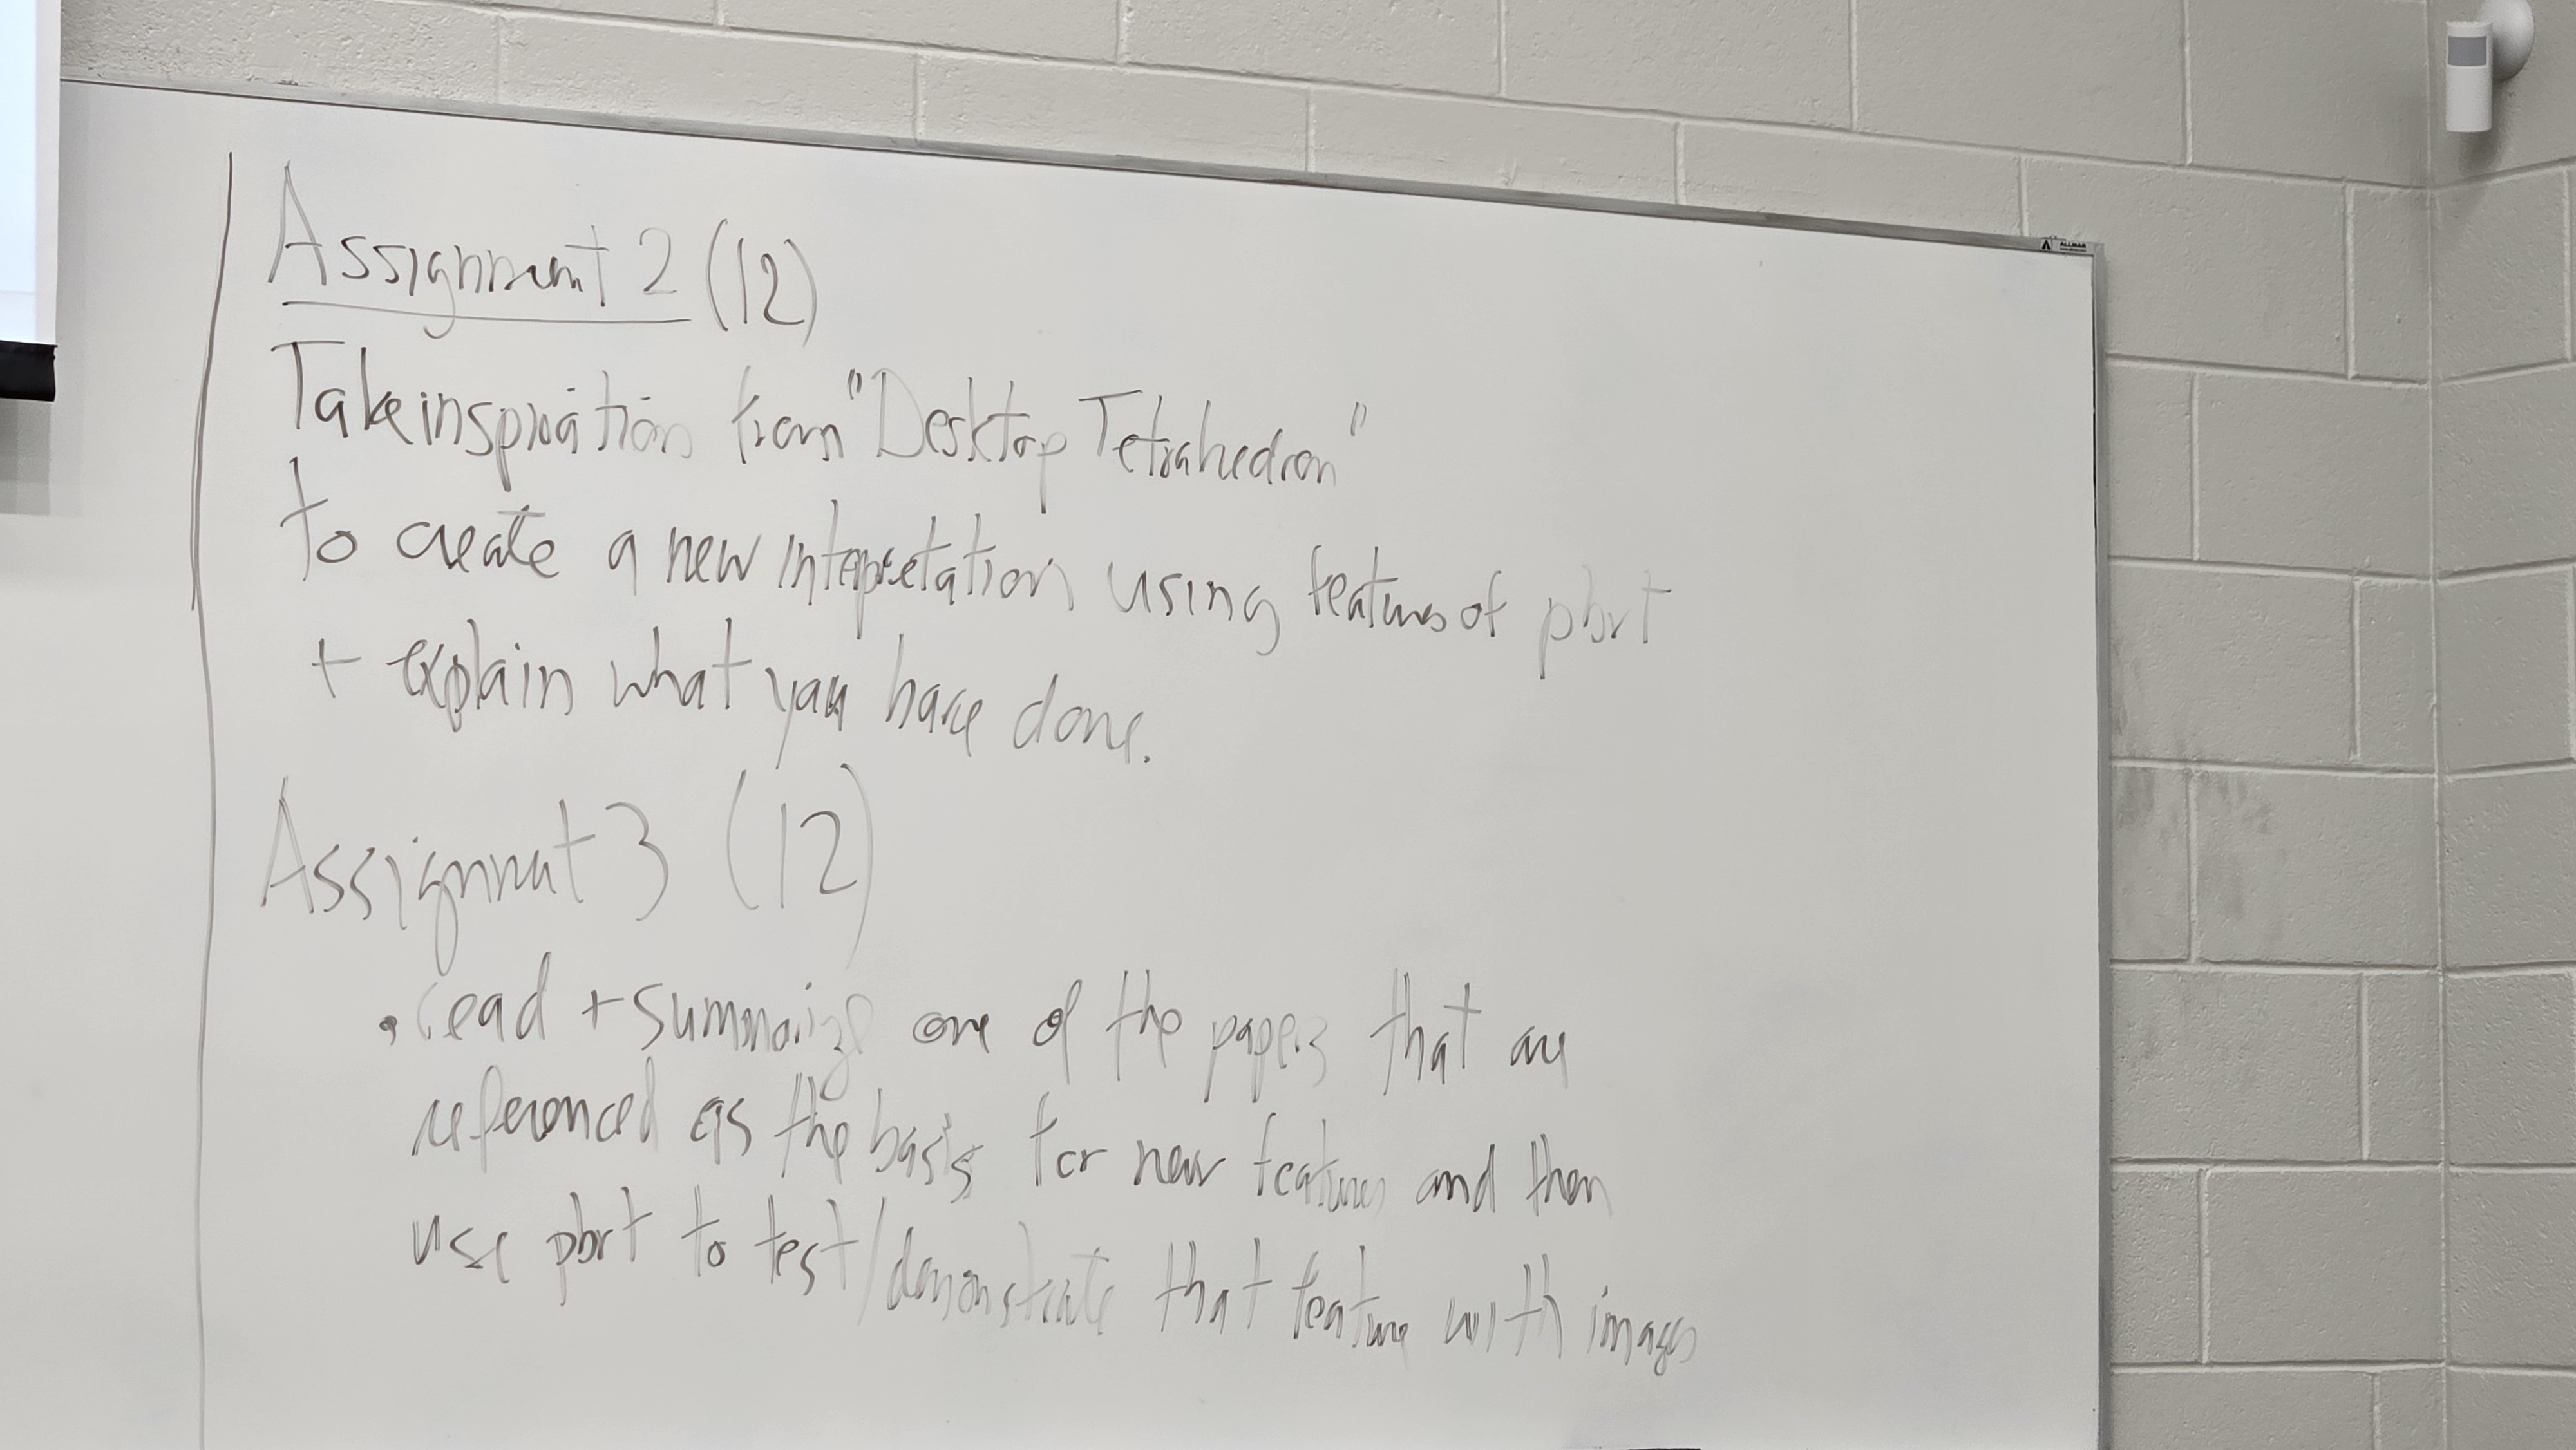 Assignment 2 (12)
Take inspiration from "Desktop Tetrahedron"
to create a new interpretation using features of pbrt
+ explain what you have done.
Assignment 3 (12)
• read + summarize one of the papers that are
referenced as the basis for new features and then
use pbrt to test/demonstrate that feature with images
ALLMAR